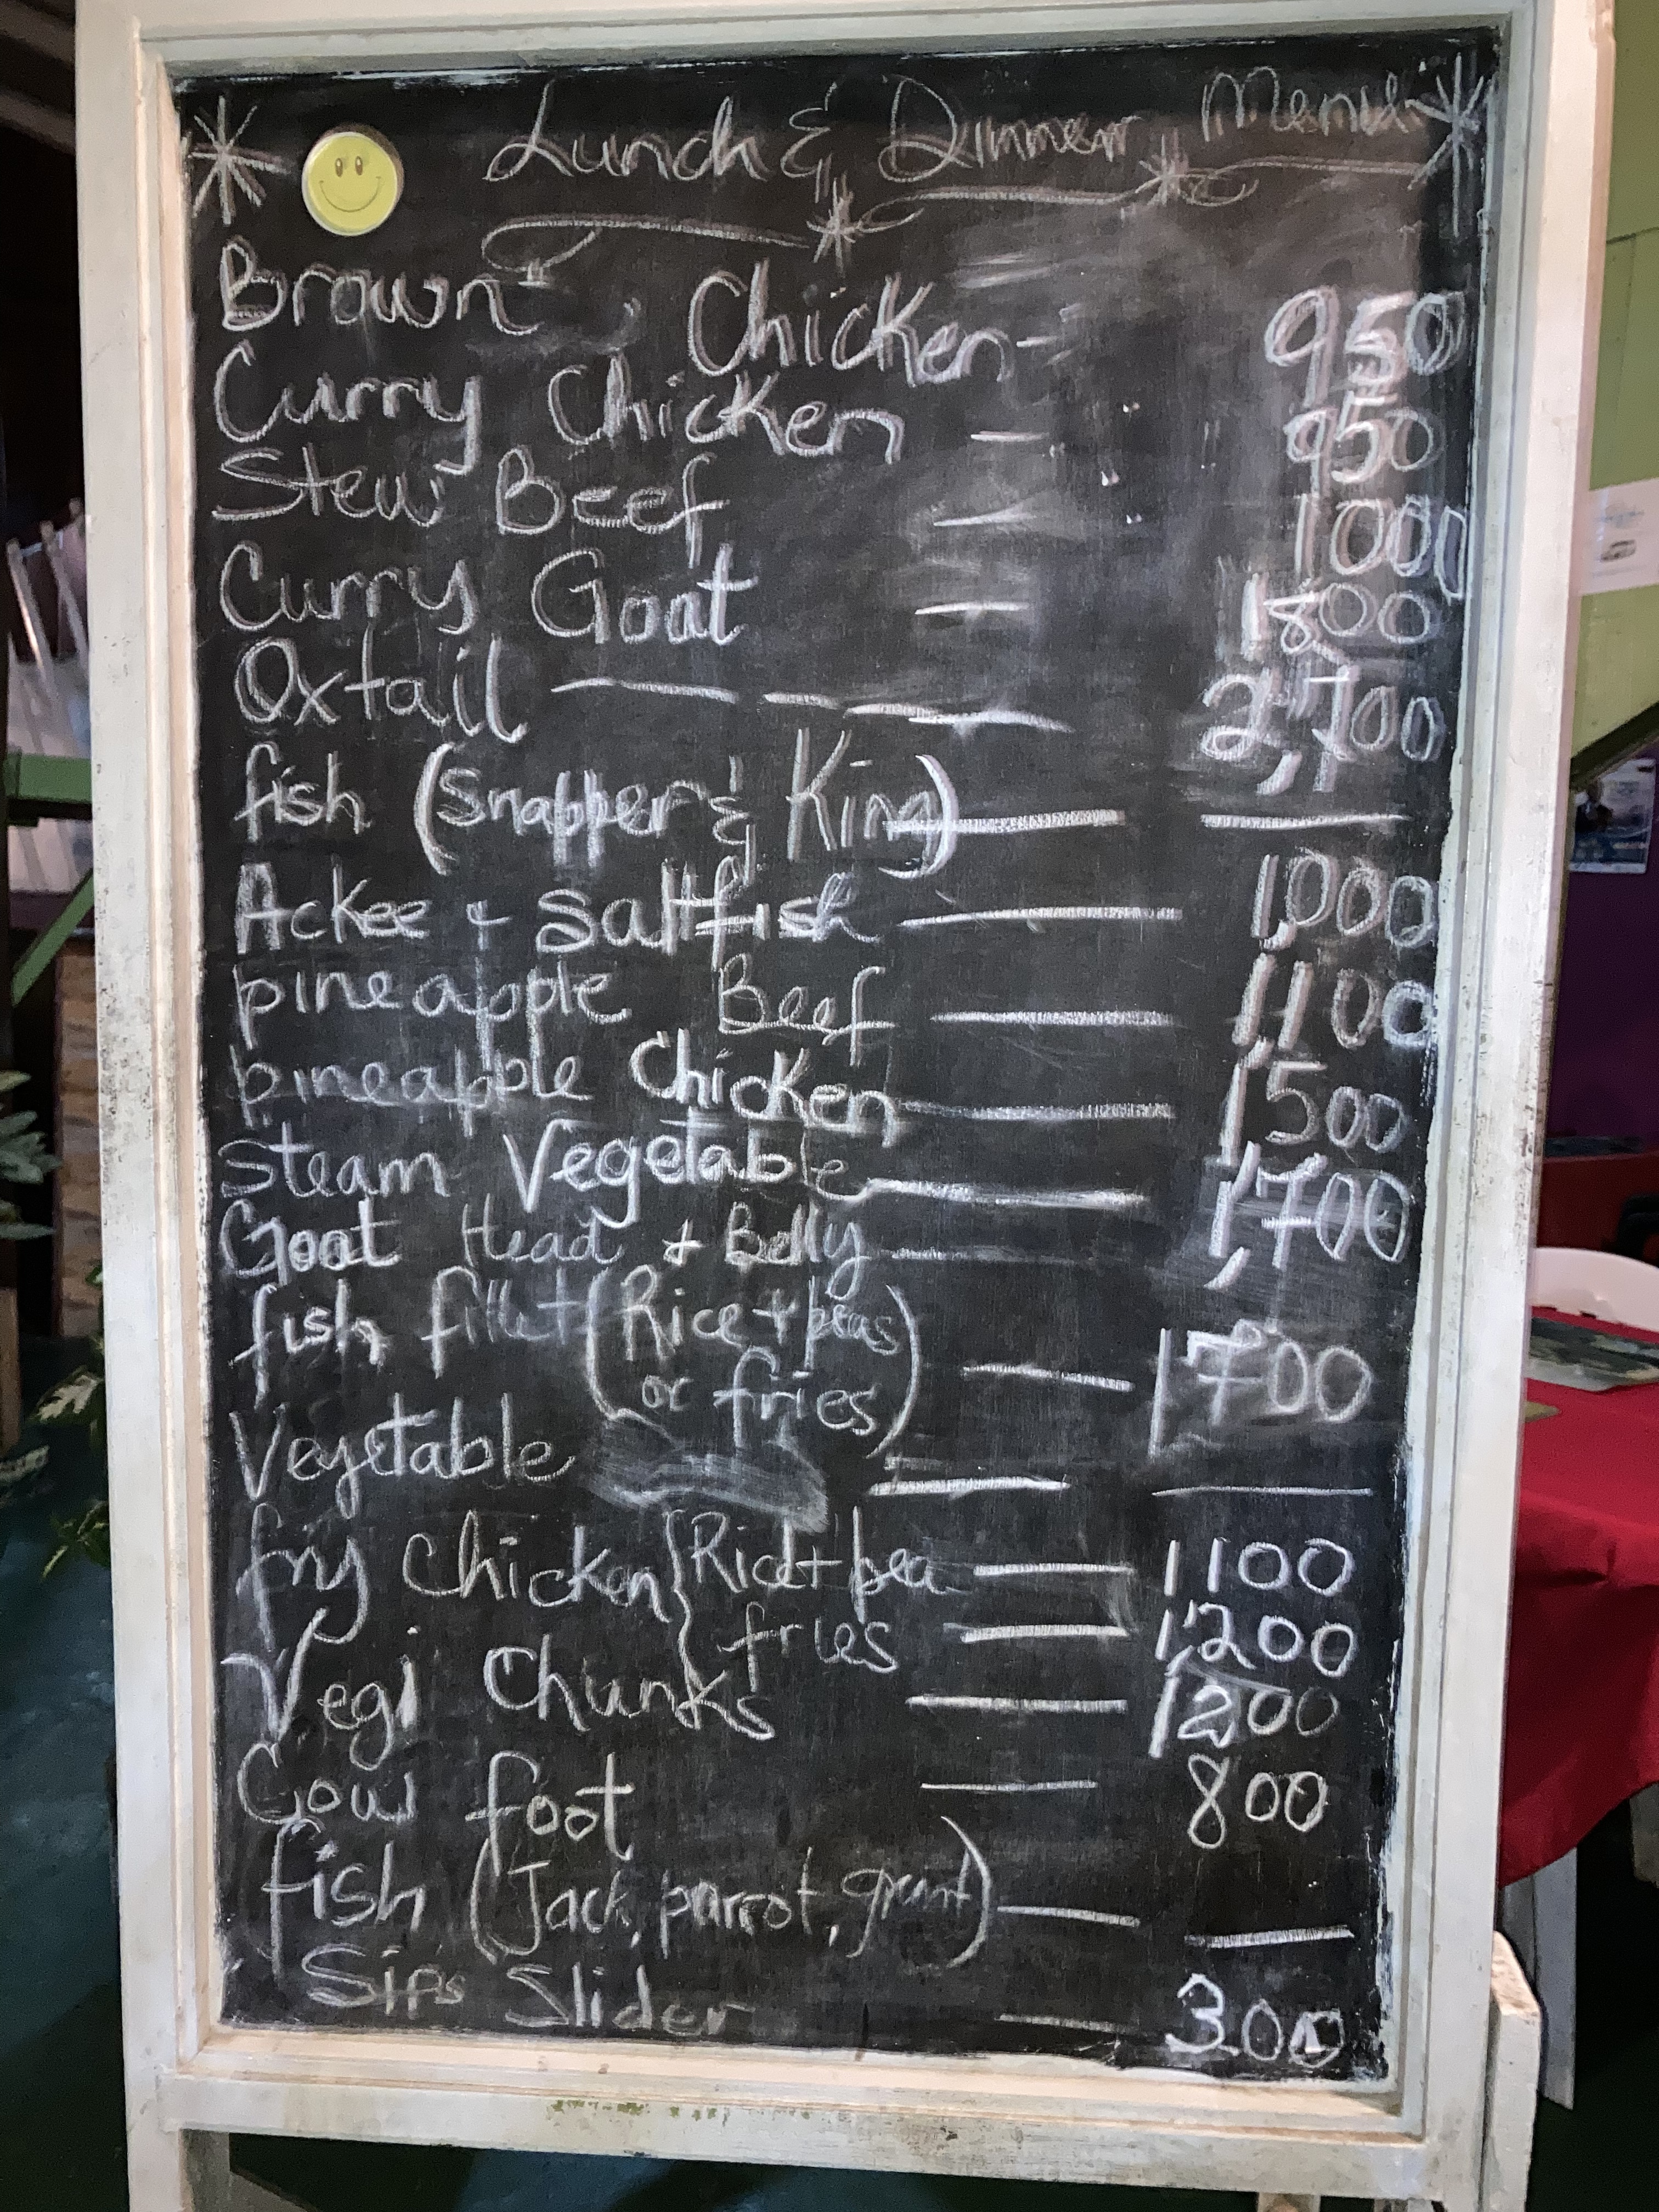 Lunch & Dinner Menu
Brown Chicken - 950
Curry Chicken - 950
Stew Beef - 1000
Curry Goat - 1800
Oxtail - - - 2,700
fish (Snapper & King) - -
Ackee + Saltfish - 1,000
pineapple Beef - 1100
pineapple Chicken - 1500
Steam Vegetable - 1,700
Goat Head & Belly -
fish fillet (Rice + peas
or fries) - 1700
Vegetable - -
fry Chicken {Rice + pea - 1100
fries - 1200
Vegi Chunks - 1200
Cow foot - 800
fish (Jack, parrot, grunt) - -
Sips Slider - 300